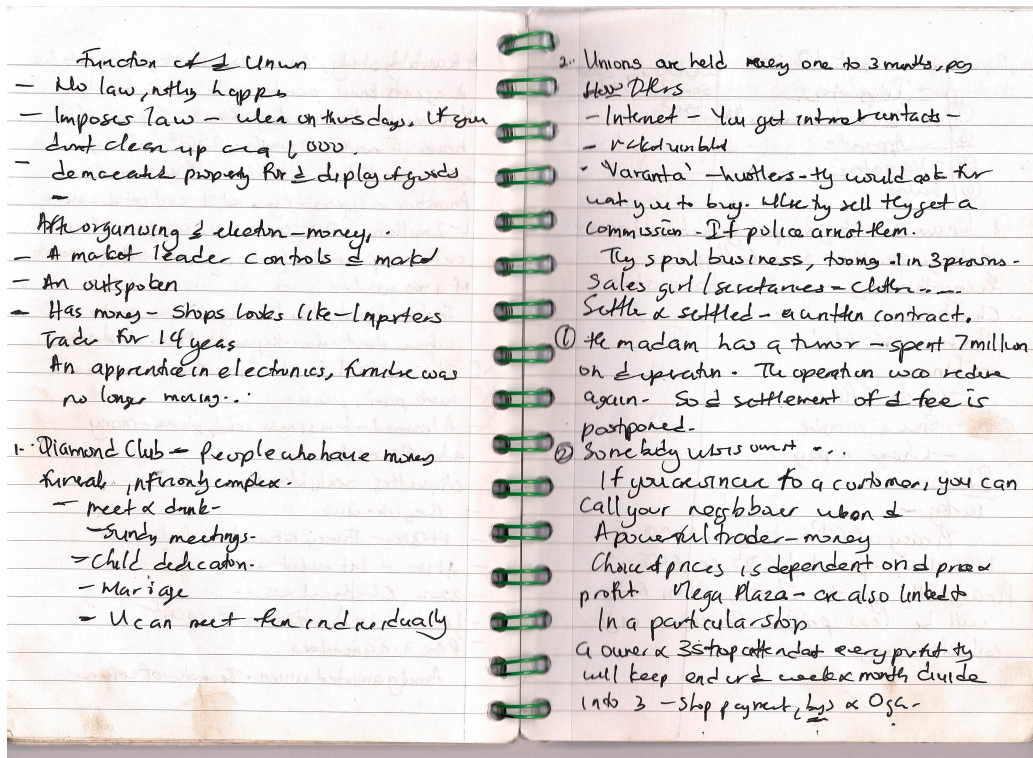 Function of d Union
- No law, nothg happs
- Imposes law - when on thursdays, if you
dont clean up 1,000
- demacated property for d display of goods
-
Aftr organising d election - money,.
- A market leader controls d market
- An outspoken
- Has money - Shops looks like - Importers
Trader for 14 years
An apprentice in electronics, furniture was
no longer moving...
1. Diamond Club - People who have money
funerals, inferiority complex.
- meet & drink -
- Sundy meetings -
- Child dedication.
- Mariage
- U can meet them individually
2. Unions are held every one to 3 months,
Others
- Internet - You get internet contacts -
-
- 'Varanta' - hustlers - ty would ask for
wat you to buy. While ty sell they get a
commission - If police arrest them.
They spoil business, 1 in 3 persons -
Sales girl / secretaries - clothn....
Settle & settled - a written contract.
① the madam has a tumor - spent 7 million
on d operation. The operation was redone
again - So d settlement of d fee is
postponed.
② Somebody who is ...
If you are sincere to a customer, you can
call your neighbour when d
A powerful trader - money
Choice of prices is dependent on d price &
profit Mega Plaza - are also linked to
In a particular shop
a owner & 3 shop attendat every profit ty
will keep end of d week & month divide
into 3 - shop payment, bys & Oga -